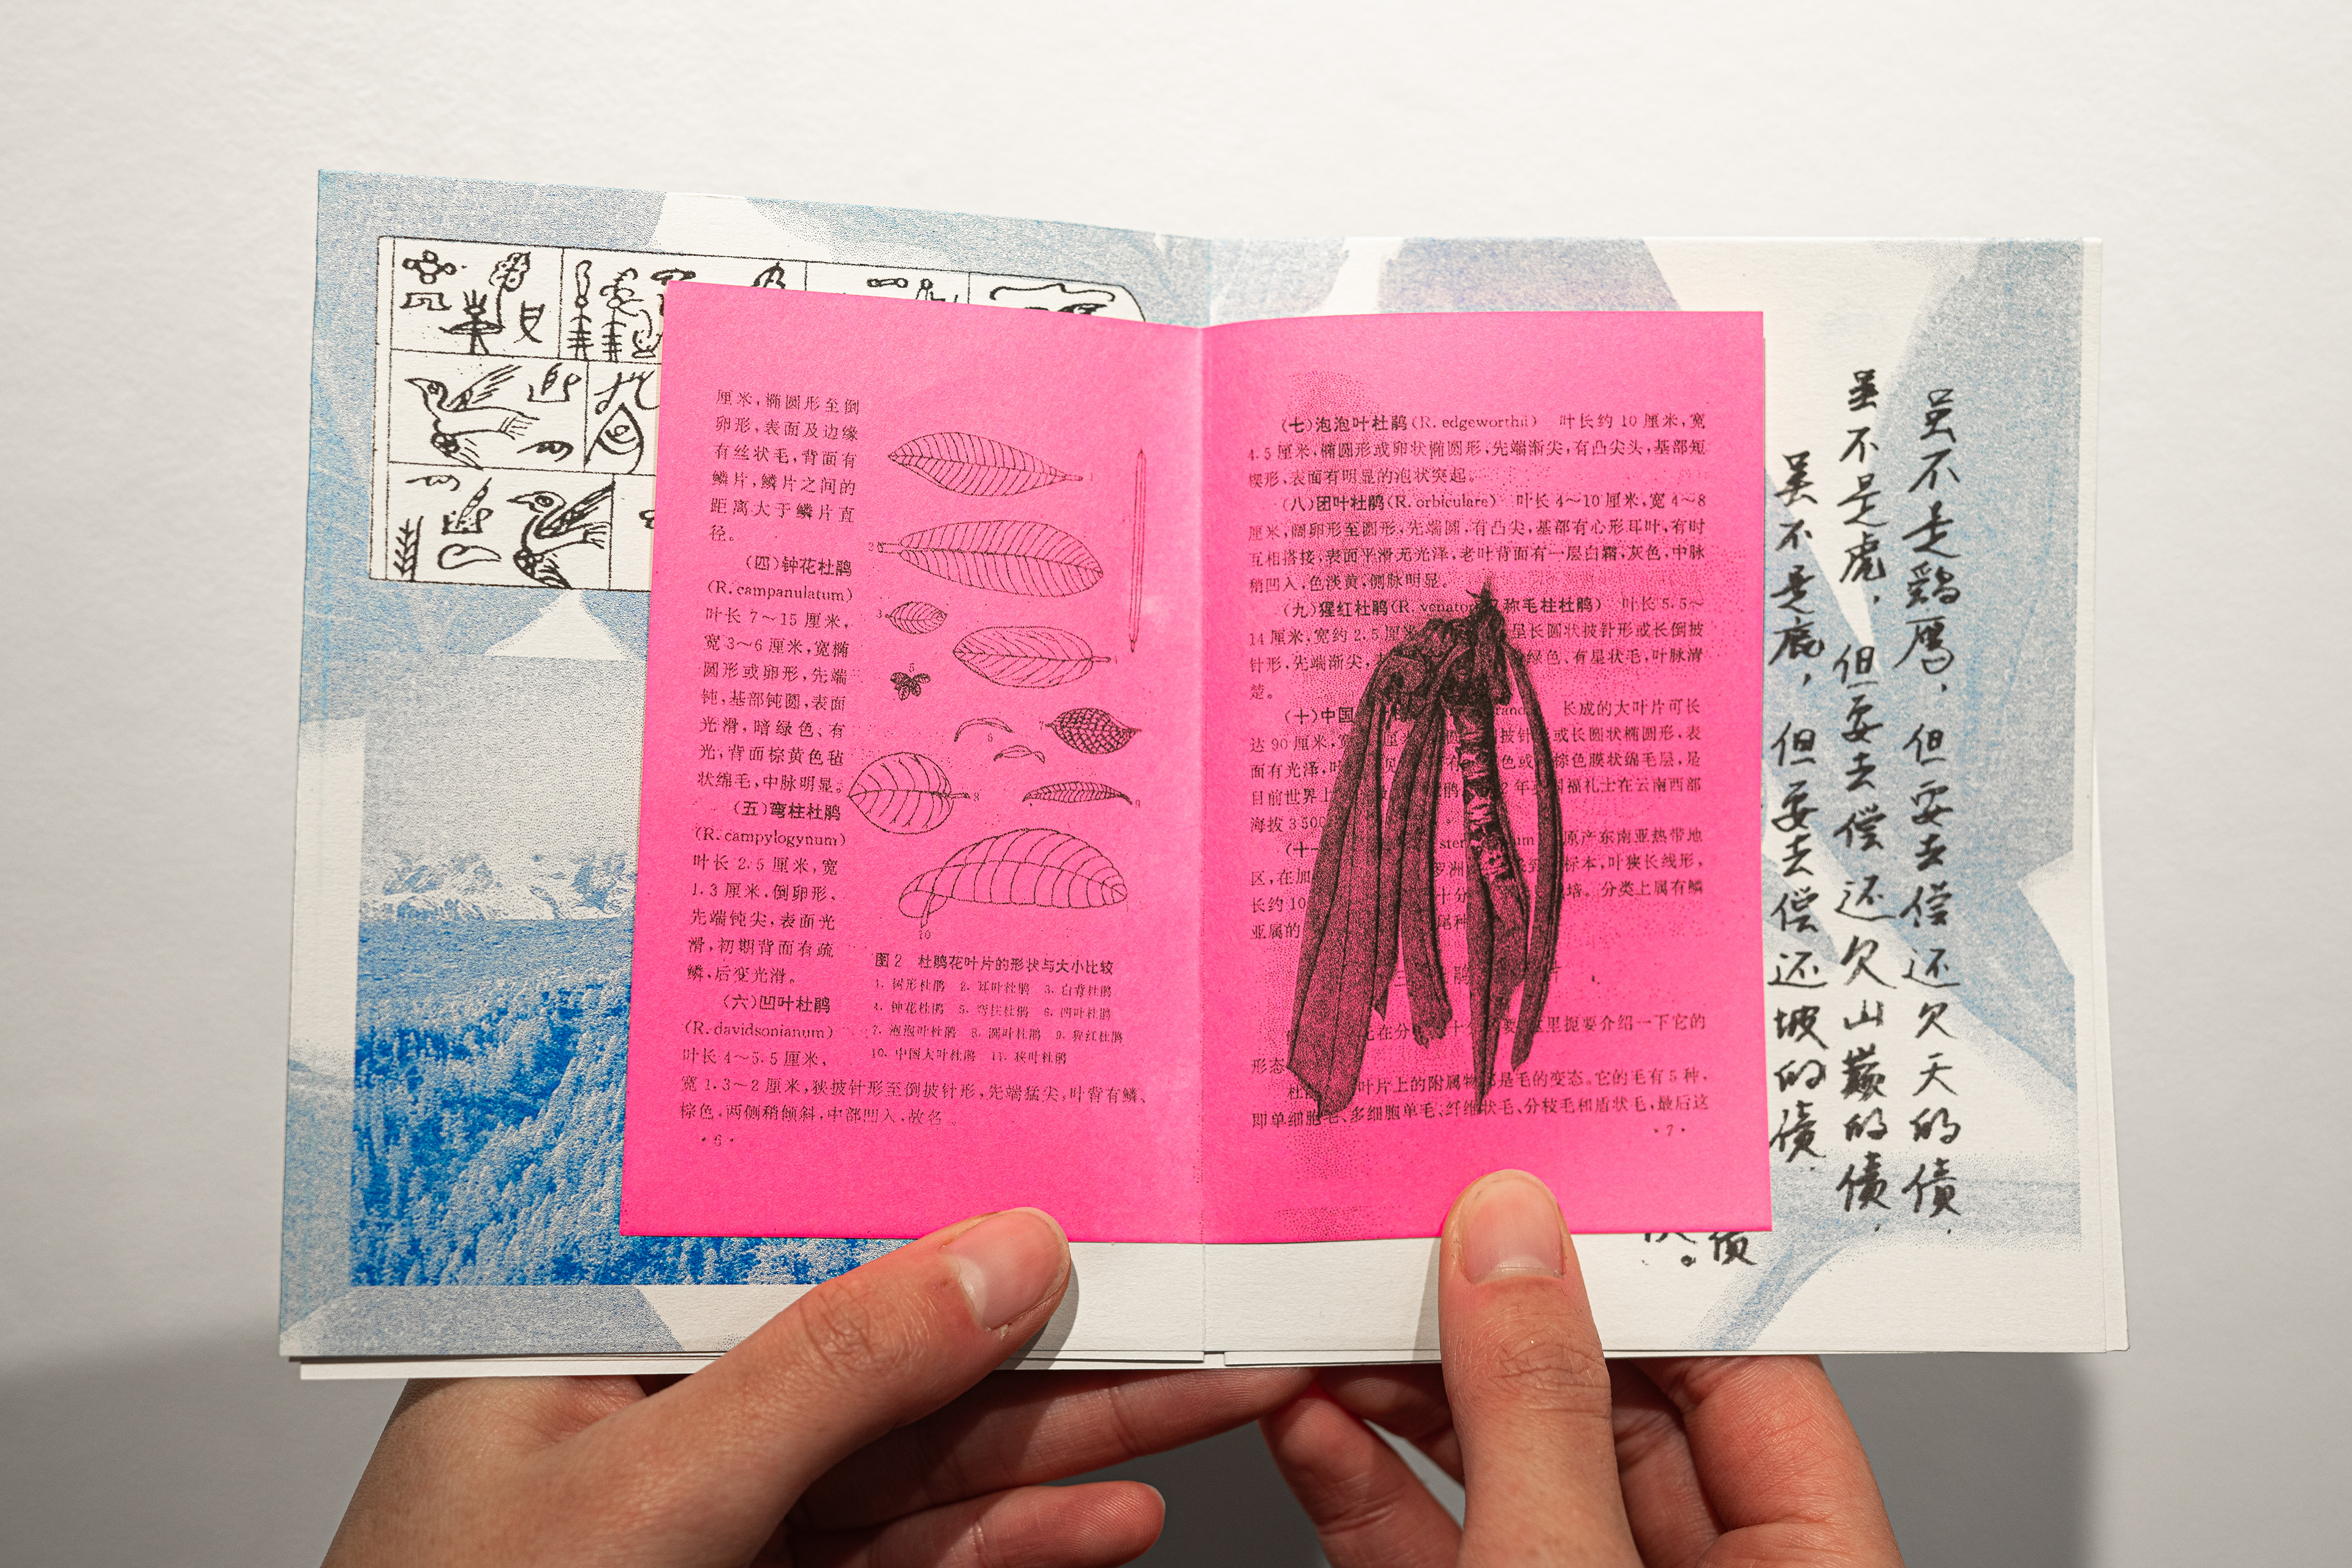 厘米，椭圆形至倒
卵形，表面及边缘
有丝状毛，背面有
鳞片，鳞片之间的
距离大于鳞片直
径。
（四）钟花杜鹃
(R. campanulatum)
叶长 7～15 厘米，
宽 3～6 厘米，宽椭
圆形或卵形，先端
钝，基部钝圆，表面
光滑，暗绿色、有
光，背面棕黄色毡
状绵毛，中脉明显。
（五）弯柱杜鹃
(R. campylogynum)
叶长 2.5 厘米，宽
1.3 厘米，倒卵形、
先端钝尖，表面光
滑，初期背面有疏
鳞、后变光滑。
（六）凹叶杜鹃
(R. davidsonianum)
叶长 4～5.5 厘米、
宽 1.3～2 厘米，狭披针形至倒披针形，先端猛尖，叶背有鳞、
棕色，两侧稍倾斜，中部凹入，故名。
·6·
1
2
3
5
6
8
9
10
图 2 杜鹃花叶片的形状与大小比较
1. 树形杜鹃 2. 耳叶杜鹃 3. 白背杜鹃
4. 钟花杜鹃 5. 弯柱杜鹃 6. 凹叶杜鹃
7. 泡泡叶杜鹃 8. 团叶杜鹃 9. 猩红杜鹃
10. 中国大叶杜鹃 11. 狭叶杜鹃
（七）泡泡叶杜鹃(R. edgeworthii) 叶长约 10 厘米，宽
4.5 厘米，椭圆形或卵状椭圆形，先端渐尖，有凸尖头，基部短
楔形，表面有明显的泡状突起。
（八）团叶杜鹃(R. orbiculare) 叶长 4～10 厘米，宽 4～8
厘米，阔卵形至圆形，先端圆，有凸尖，基部有心形耳叶，有时
互相搭接，表面平滑无光泽，老叶背面有一层白霜，灰色，中脉
稍凹入，色淡黄，侧脉明显。
（九）猩红杜鹃(R. venator 称毛柱杜鹃） 叶长 5.5～
14 厘米，宽约 2.5 厘米 呈长圆状披针形或长倒披
针形，先端渐尖， 绿色、有星状毛，叶脉清
楚。
（十）中国 rand 长成的大叶片可长
达 90 厘米，宽 厘米 披针 或长圆状椭圆形，表
面有光泽，叶 色或 棕色膜状绵毛层，是
目前世界上 鹃 2 年 国福礼士在云南西部
海拔 3500
（十一 sten um 原产东南亚热带地
区，在加 罗洲 标本，叶狭长线形，
长约 10 十分 培。分类上属有鳞
亚属的 尾种
鹃
在分 十分 要 里扼要介绍一下它的
形态
杜鹃 叶片上的附属物 是毛的变态。它的毛有 5 种，
即单细胞毛、多细胞单毛、纤维状毛、分枝毛和盾状毛，最后这
·7·
虽不是鷄鴈，但要去偿还欠天的债，
虽不是虎，但要去偿还欠山巅的债，
虽不是鹿，但要去偿还坡的债，
债
。